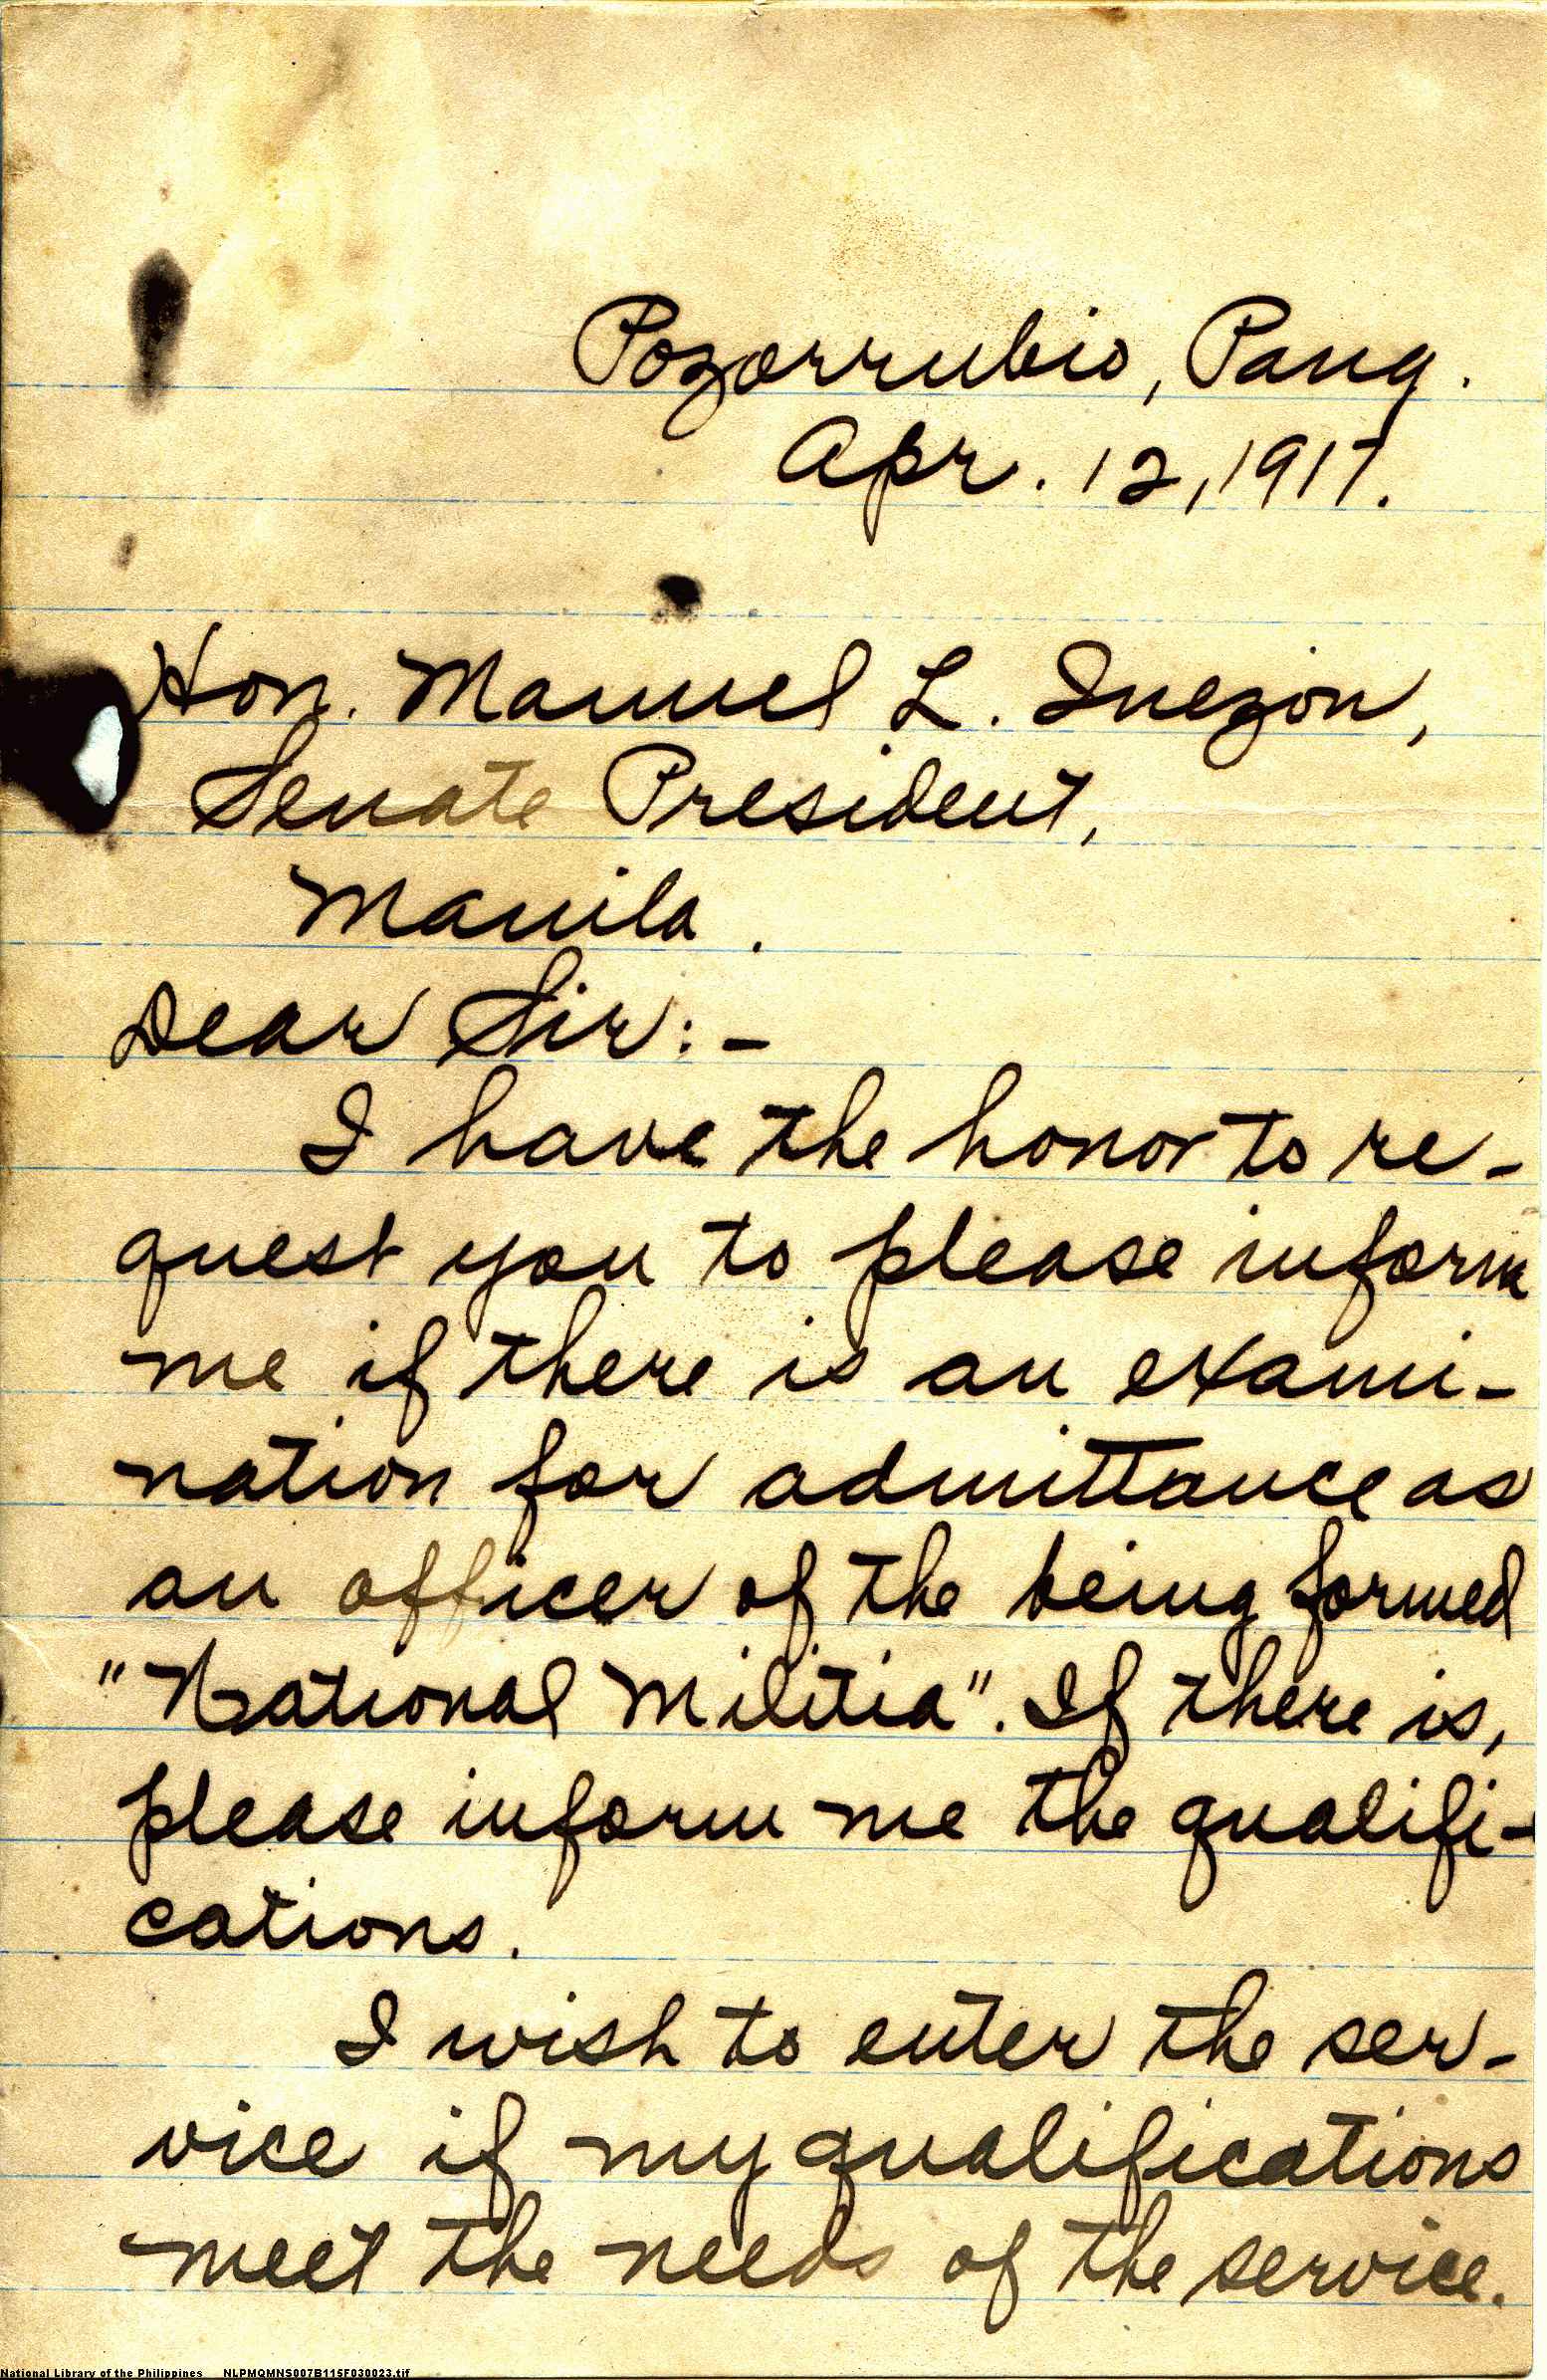 Pozorrubio, Pang.
Apr. 12, 1917.
Hon. Manuel L. Quezon,
Senate President,
Manila.
Dear Sir:-
I have the honor to re-
quest you to please inform
me if there is an exami-
nation for admittance as
an officer of the being formed
"National Militia". If there is,
please inform me the qualifi-
cations.
I wish to enter the ser-
vice if my qualifications
meet the needs of the service.
National Library of the Philippines NLPMQMNS007B115F030023.tif